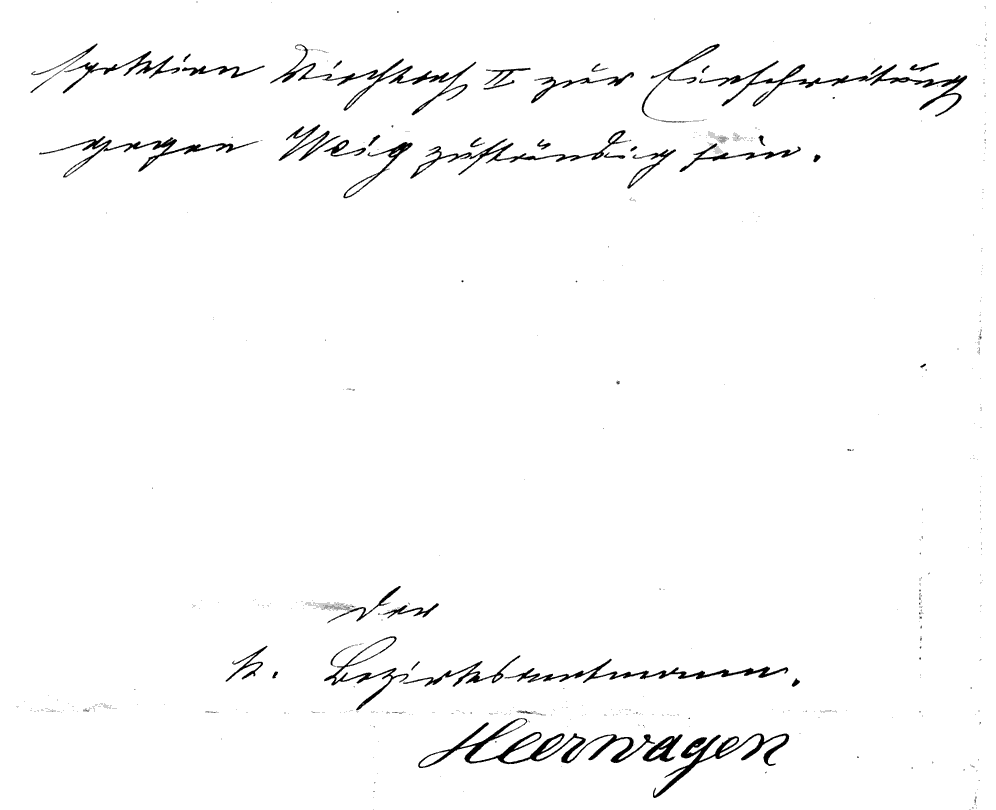 spektion Viechtach II zur Einschreitung
gegen Weig zuständig sein.
Der
k. Bezirksamtmann.
Heerwagen